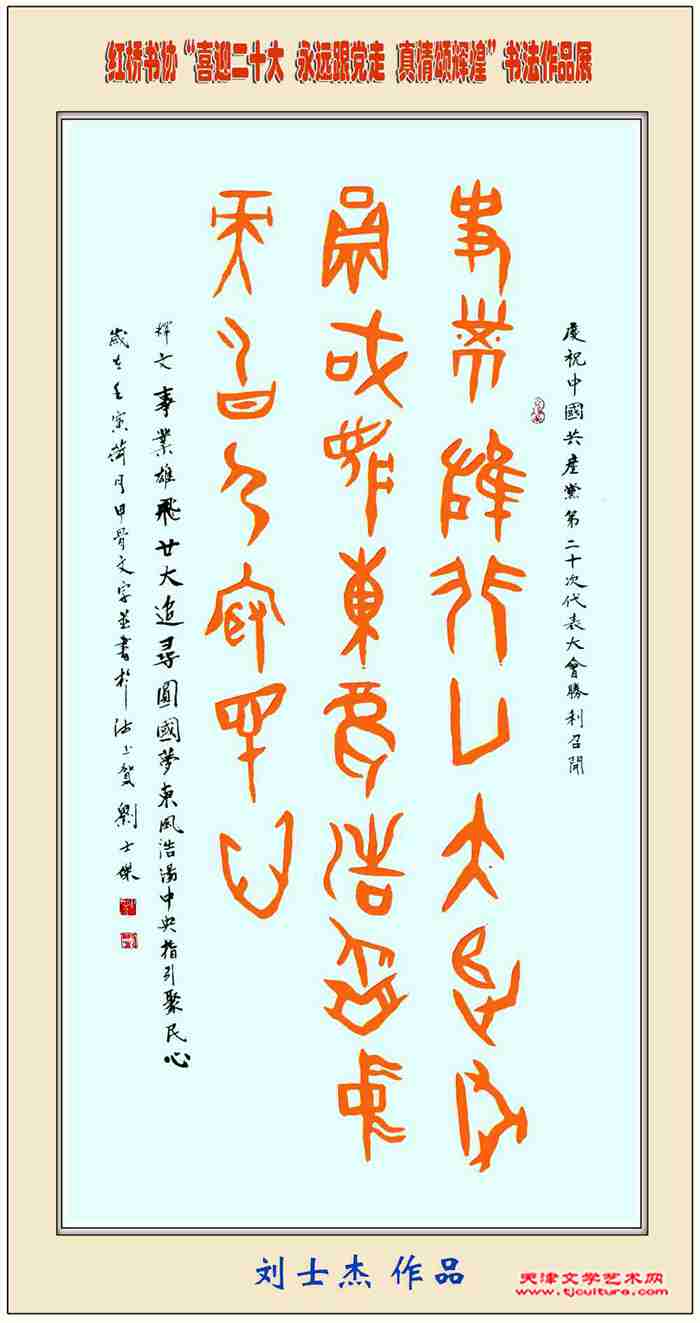 红桥书协“喜迎二十大 永远跟党走 真情颂辉煌”书法作品展
慶祝中國共產黨第二十次代表大會勝利召開
事業雄飛廿大追尋
圓國夢東風浩蕩中
央指引聚民心
釋文 事業雄飛廿大追尋圓國夢東風浩湯中央指引聚民心
歲在壬寅荷月甲骨文字並書於沽上賀劉士傑
刘士杰 作品
天津文学艺术网
www.tjculture.com